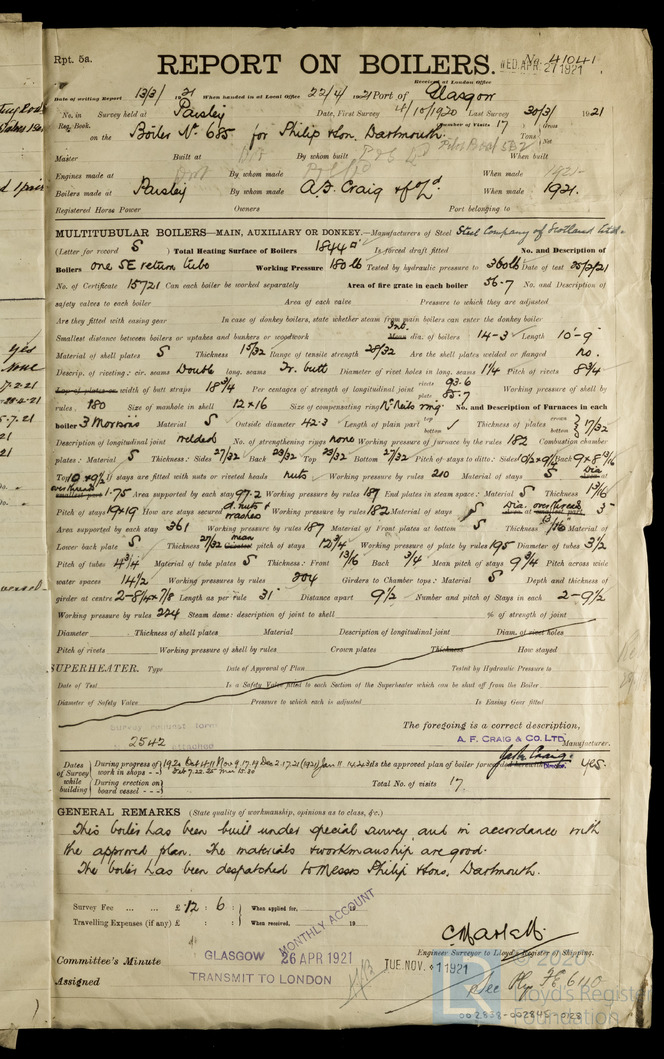 Rpt. 5a.
REPORT ON BOILERS.
No. 41041
WED. APR. 27 1921
Received at London Office
Date of writing Report 13/3/1921 When handed in at Local Office 22/4/1921 Port of Glasgow
No. in Reg. Book. Survey held at Paisley Date, First Survey 4/10/1920 Last Survey 30/3/1921
on the Boiler No. 685 for Philip & Son, Dartmouth. Number of Visits 17 Gross Tons Net
Master Built at By whom built When built
Engines made at By whom made When made 1921
Boilers made at Paisley By whom made A. F. Craig & Co Ld When made 1921.
Registered Horse Power Owners Port belonging to
MULTITUBULAR BOILERS—MAIN, AUXILIARY OR DONKEY.—Manufacturers of Steel Steel Company of Scotland Ltd.
(Letter for record S) Total Heating Surface of Boilers 1844 Is forced draft fitted No. and Description of
Boilers one SE return tube Working Pressure 180 lb Tested by hydraulic pressure to 360 lb Date of test 25/2/21
No. of Certificate 15721 Can each boiler be worked separately Area of fire grate in each boiler 56.7 No. and Description of
safety valves to each boiler Area of each valve Pressure to which they are adjusted
Are they fitted with easing gear In case of donkey boilers, state whether steam from main boilers can enter the donkey boiler
Smallest distance between boilers or uptakes and bunkers or woodwork Int. Mean dia. of boilers 14-3 Length 10'-9"
Material of shell plates S Thickness 15/32 Range of tensile strength 28/32 Are the shell plates welded or flanged no.
Descrip. of riveting: cir. seams Double long. seams Tr. butt Diameter of rivet holes in long. seams 1 1/4 Pitch of rivets 8 3/4
Lap of plates or width of butt straps 18 3/4 Per centages of strength of longitudinal joint rivets 93.6 plate 85.7 Working pressure of shell by
rules 180 Size of manhole in shell 12 x 16 Size of compensating ring McNeils ring No. and Description of Furnaces in each
boiler 3 Morisons Material S Outside diameter 42.3 Length of plain part top bottom Thickness of plates crown bottom 17/32
Description of longitudinal joint welded No. of strengthening rings none Working pressure of furnace by the rules 182 Combustion chamber
plates: Material S Thickness: Sides 27/32 Back 23/32 Top 23/32 Bottom 27/32 Pitch of stays to ditto: Sides 10 1/2 x 9 1/4 Back 9 x 8 13/16
Top 10 x 9 1/2 If stays are fitted with nuts or riveted heads nuts Working pressure by rules 210 Material of stays S Dia. at
over threads smallest part 1.75 Area supported by each stay 97.2 Working pressure by rules 187 End plates in steam space: Material S Thickness 1 3/16
Pitch of stays 19 x 19 How are stays secured d. nuts & washers Working pressure by rules 182 Material of stays S Dia. over threads at smallest part 3"
Area supported by each stay 361 Working pressure by rules 187 Material of Front plates at bottom S Thickness 13/16 Material of
Lower back plate S Thickness 27/32 mean Greatest pitch of stays 12 3/4 Working pressure of plate by rules 195 Diameter of tubes 3 1/2
Pitch of tubes 4 3/4 Material of tube plates S Thickness: Front 13/16 Back 3/4 Mean pitch of stays 9 3/4 Pitch across wide
water spaces 14 1/2 Working pressures by rules 204 Girders to Chamber tops: Material S Depth and thickness of
girder at centre 2-8 1/4 x 7/8 Length as per rule 31" Distance apart 9 1/2 Number and pitch of Stays in each 2-9 1/2
Working pressure by rules 224 Steam dome: description of joint to shell % of strength of joint
Diameter Thickness of shell plates Material Description of longitudinal joint Diam. of rivet holes
Pitch of rivets Working pressure of shell by rules Crown plates Thickness How stayed
SUPERHEATER. Type Date of Approval of Plan Tested by Hydraulic Pressure to
Date of Test Is a Safety Valve fitted to each Section of the Superheater which can be shut off from the Boiler
Diameter of Safety Valve Pressure to which each is adjusted Is Easing Gear fitted
2542
The foregoing is a correct description,
A. F. CRAIG & CO. LTD. Manufacturer.
Dates of Survey while building During progress of work in shops - - 1920 Oct 4. 11 Nov 9. 17. 19 Dec 2. 17. 21 (1921) Jan 11 Feb 7. 22. 25 Mar 15. 30 Is the approved plan of boiler forwarded herewith yes.
During erection on board vessel - - - Total No. of visits 17.
GENERAL REMARKS (State quality of workmanship, opinions as to class, &c.)
This boiler has been built under special survey and in accordance with
the approved plan. The materials & workmanship are good.
The boiler has been despatched to Messrs Philip & Sons, Dartmouth.
Survey Fee ... ... £ 12 : 6 : When applied for, 19
Travelling Expenses (if any) £ : : When received, 19
MONTHLY ACCOUNT
Engineer Surveyor to Lloyd's Register of Shipping.
Committee's Minute GLASGOW 26 APR 1921
TUE. NOV. 1 1921
Assigned TRANSMIT TO LONDON
See
© 2020
Lloyd's Register
Foundation
002838-002845-0128